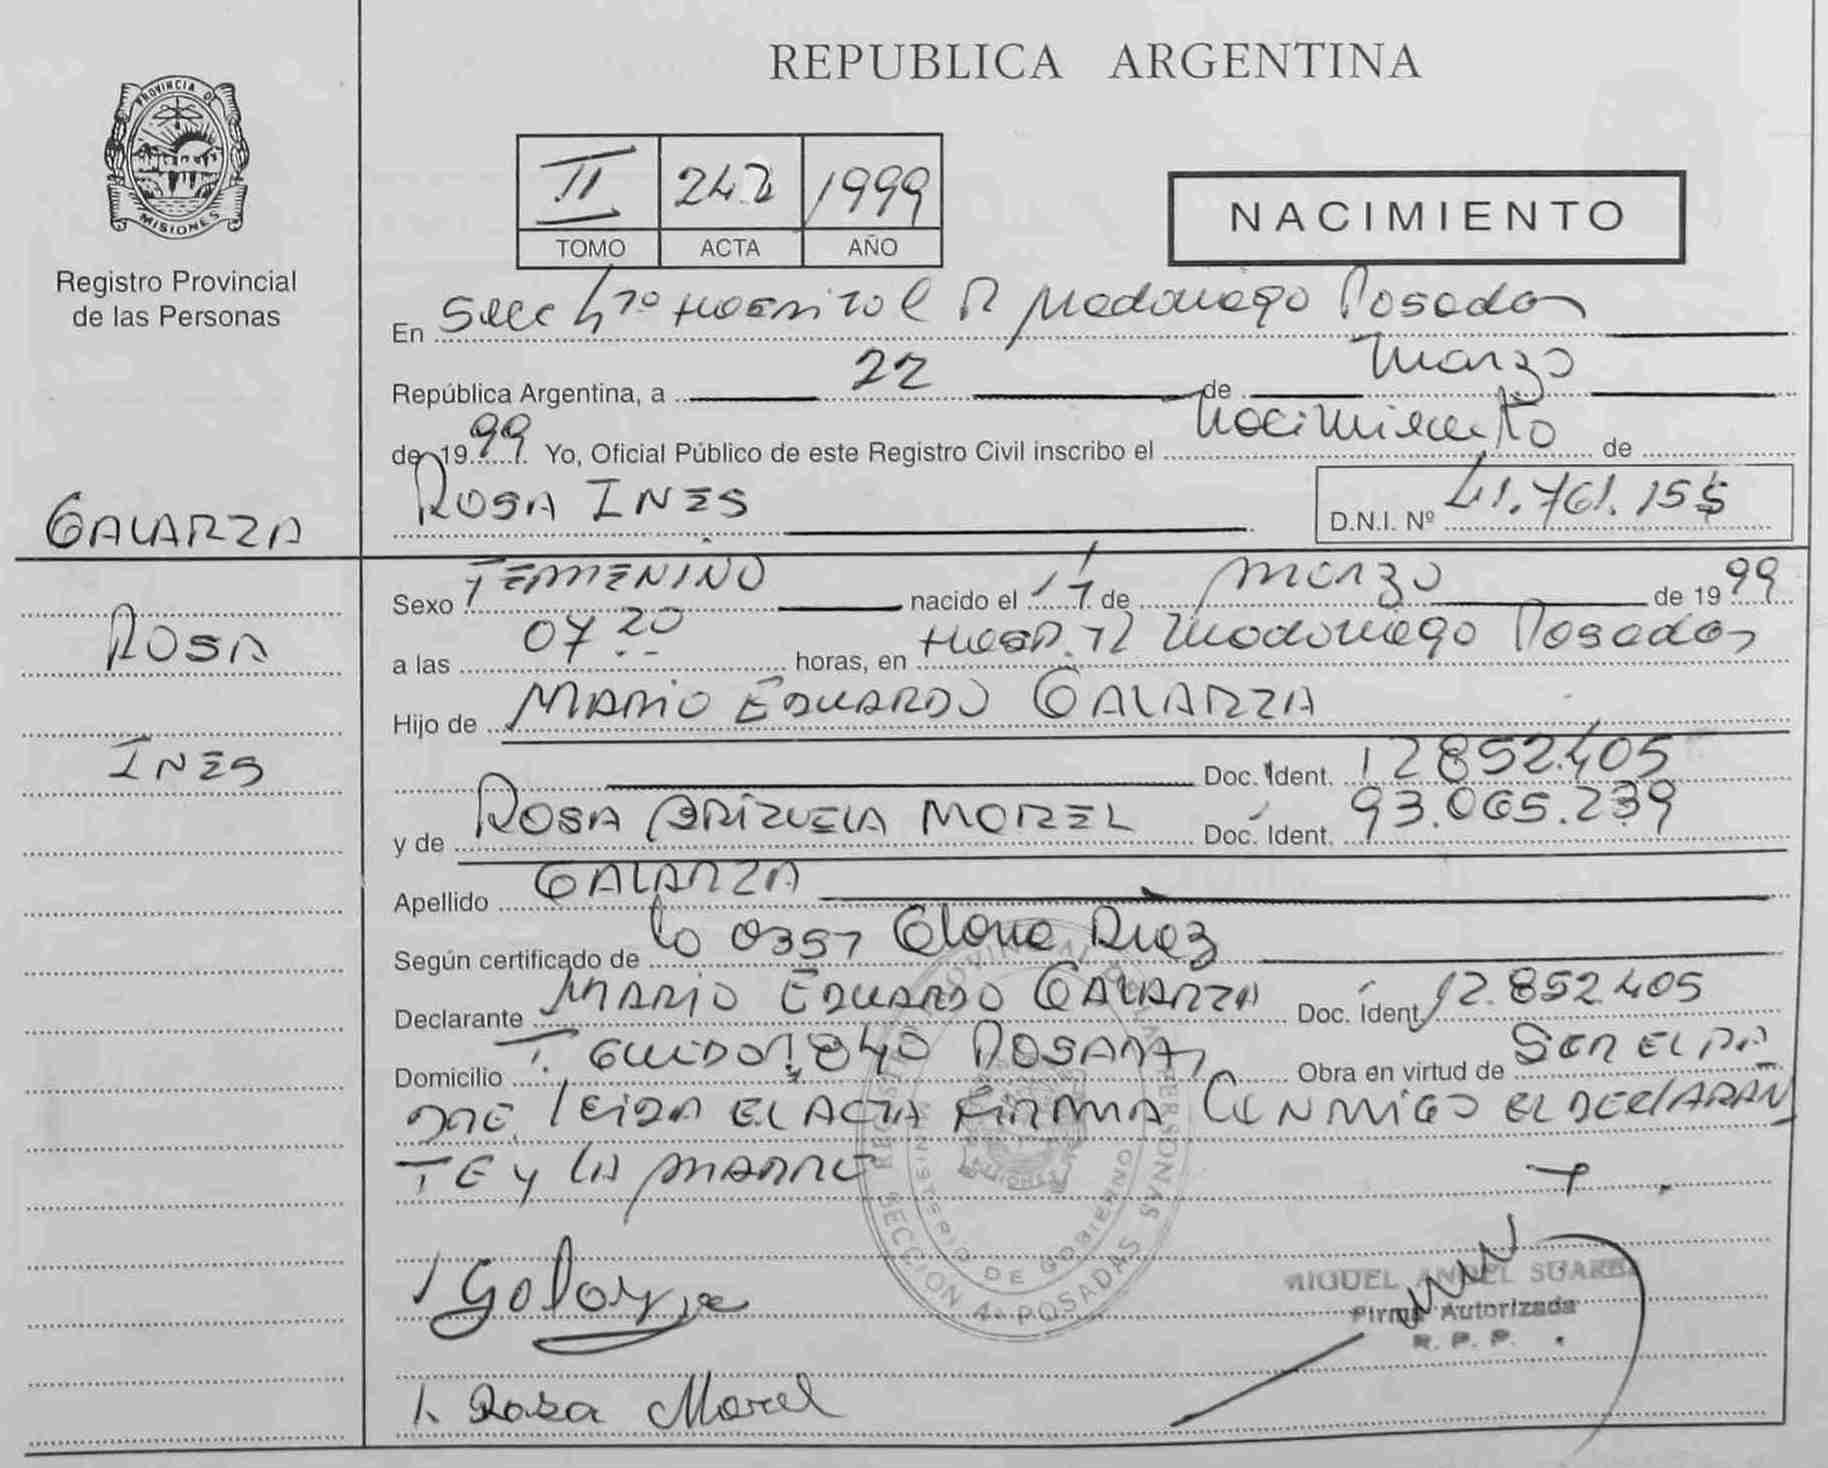 REPUBLICA ARGENTINA
PROVINCIA DE
MISIONES
Registro Provincial
de las Personas
II 242 1999
TOMO ACTA AÑO
NACIMIENTO
En Secc 4ta Hospital R Madariaga Posadas
República Argentina, a 22 de Marzo
de 1999 Yo, Oficial Público de este Registro Civil inscribo el Nacimiento de
ROSA INES
D.N.I. Nº 41.761.155
GALARZA
ROSA
INES
Sexo FEMENINO nacido el 17 de marzo de 1999
a las 07 20 horas, en Hosp. R Madariaga Posadas
Hijo de MARIO EDUARDO GALARZA
Doc. Ident. 12852.405
y de ROSA BRIZUELA MOREL Doc. Ident. 93.065.239
Apellido GALARZA
Según certificado de 0357
Declarante MARIO EDUARDO GALARZA Doc. Ident. 12.852.405
Domicilio POSADAS Obra en virtud de SER EL PA
DRE. LEIDA EL ACTA FIRMA CONMIGO EL DECLARAN
TE Y LA MADRE
REGISTRO PROVINCIAL DE LAS PERSONAS
MINISTERIO DE GOBIERNO
SECCION 4ª POSADAS
MIGUEL ANGEL SUAREZ
Firma Autorizada
R. P. P.
Galarza
Rosa Morel